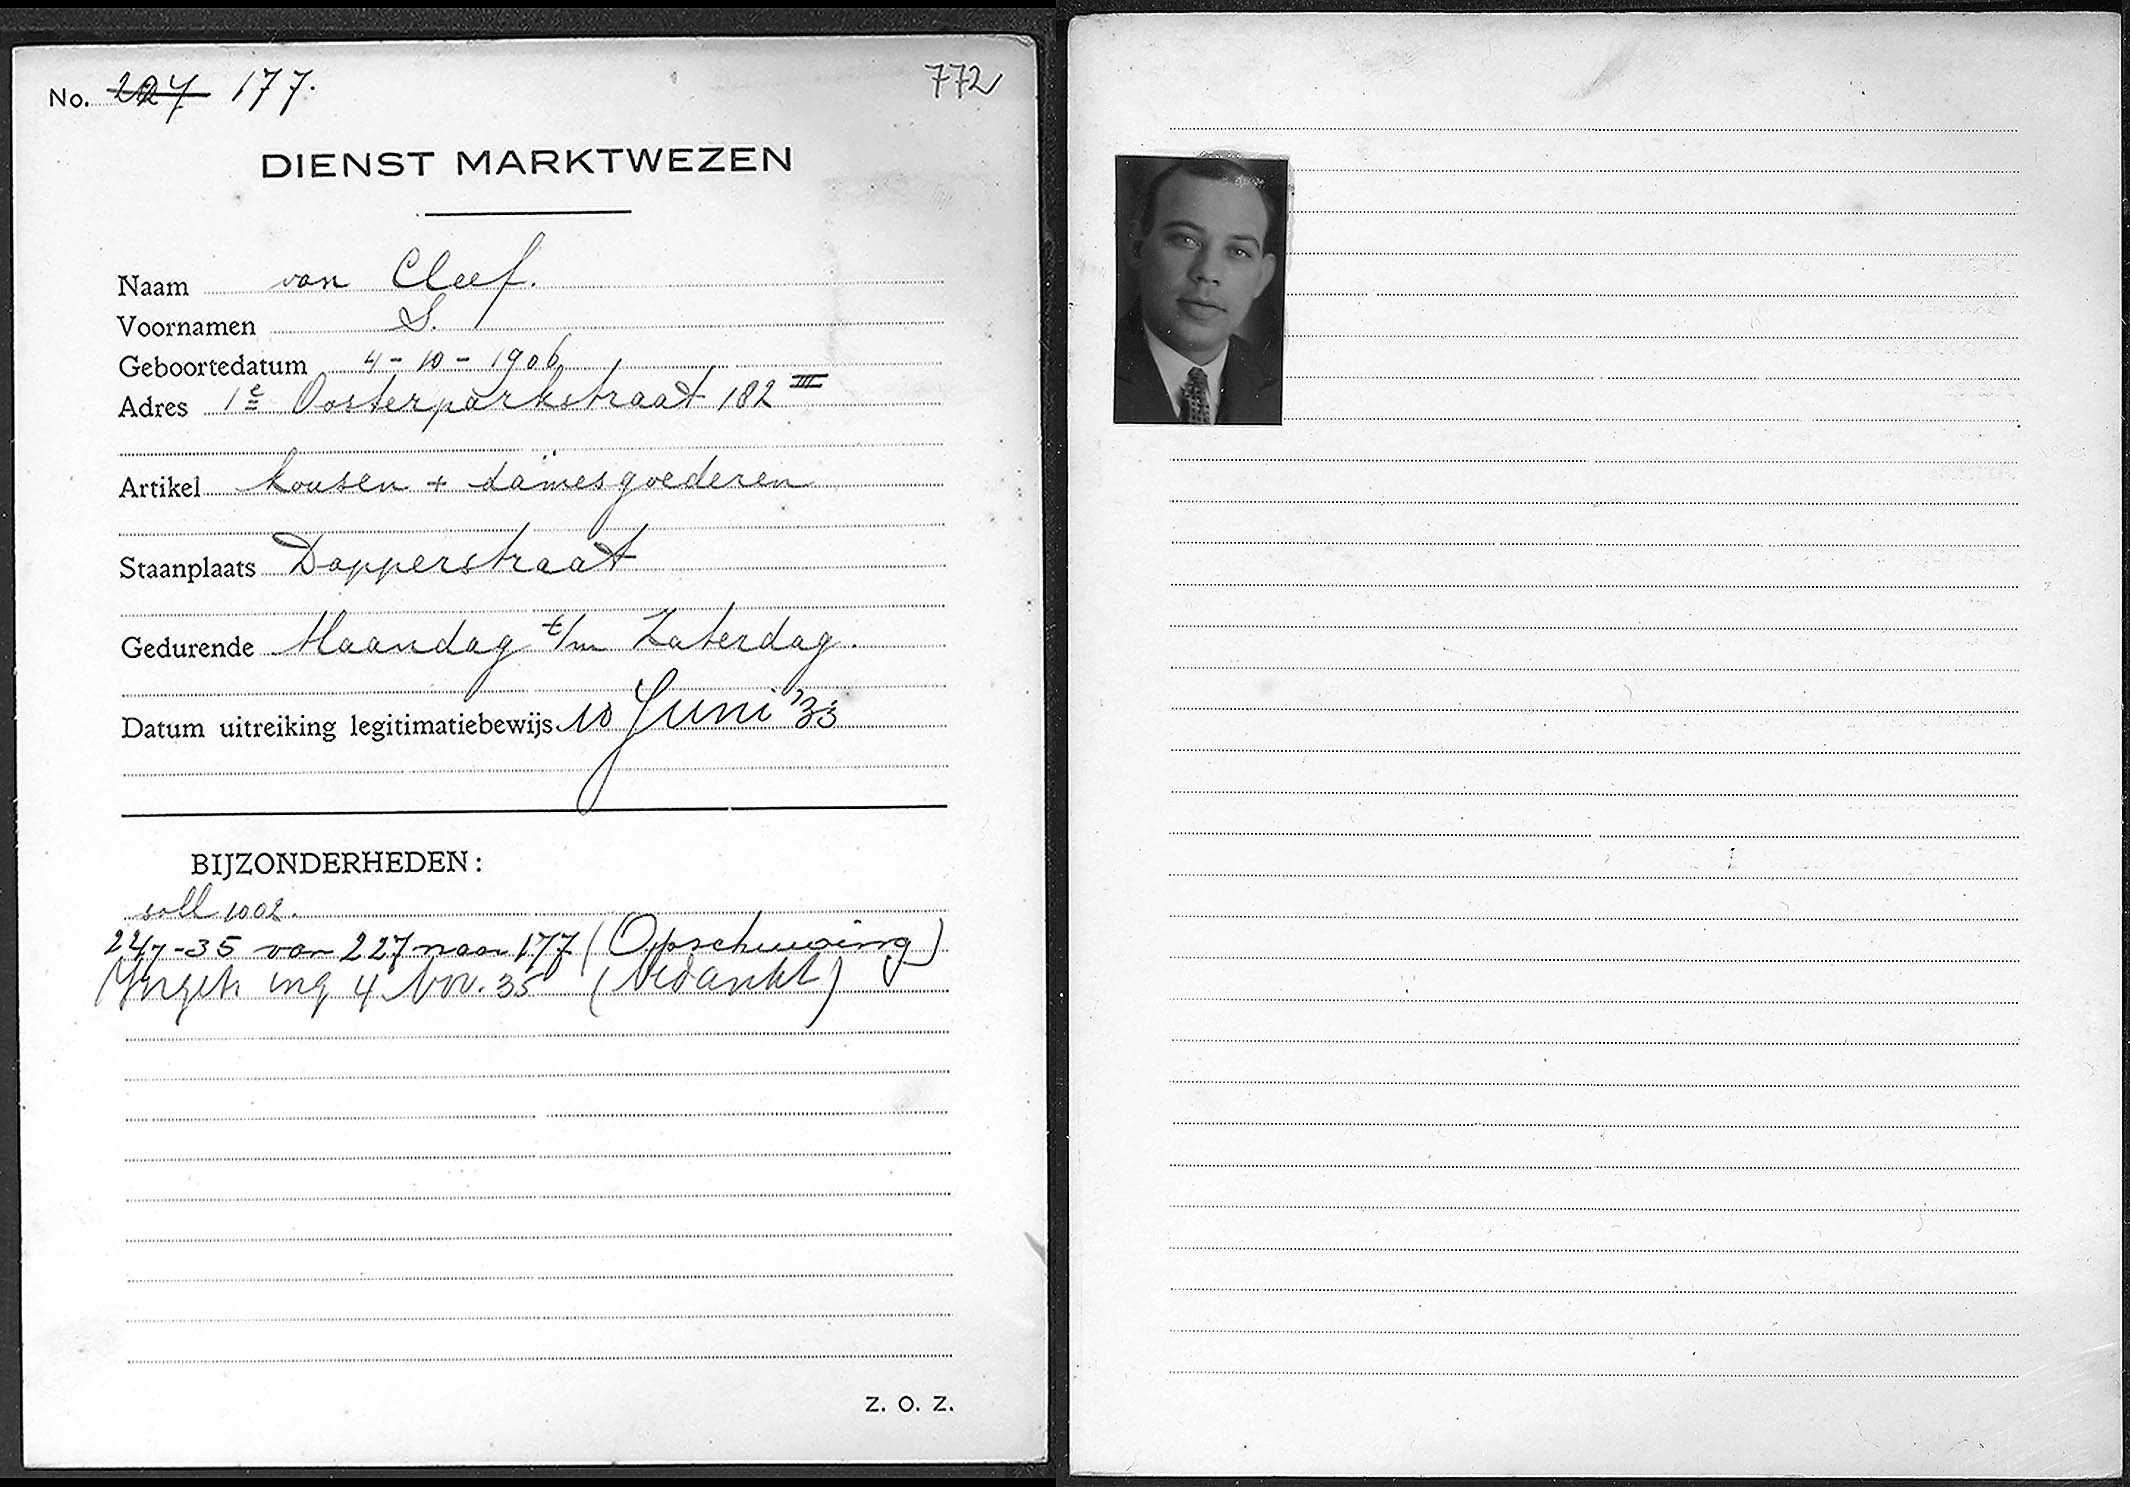 No. 227 177.
772
DIENST MARKTWEZEN
Naam van Cleef.
Voornamen S.
Geboortedatum 4-10-1906
Adres 1e Oosterparkstraat 182 III
Artikel kousen + damesgoederen
Staanplaats Dapperstraat
Gedurende Maandag t/m Zaterdag.
Datum uitreiking legitimatiebewijs 10 Juni '33
BIJZONDERHEDEN:
soll 1002.
22/7-35 van 227 naar 177 (Opschuiving)
Ingetr. ing 4 Nov. 35 (Bedankt)
Z. O. Z.